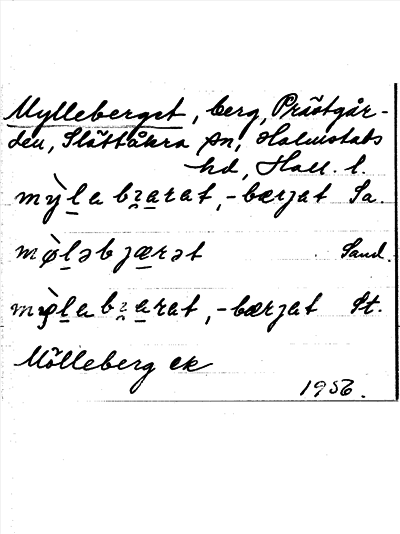 Mylleberget, berg, Prästgår-
den, Slättåkra sn, Halmstads
hd, Hall. l.
mỳla bɀarat, -bærjat Sa.
mø̀ləbjærət Sand.
mỳla bɀarat, -bærjat St.
Mölleberg ek
1956.